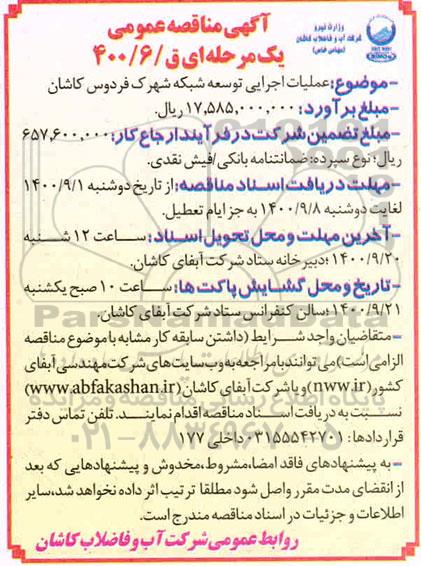 آگهی مناقصه عمومی
یک مرحله ای ق/۴۰۰/۶
وزارت نیرو
شرکت آب و فاضلاب کاشان
(سهامی خاص)
-موضوع: عملیات اجرایی توسعه شبکه شهرک فردوس کاشان
-مبلغ برآورد: ۱۷,۵۸۵,۰۰۰,۰۰۰ ریال.
-مبلغ تضمین شرکت در فرآیند ارجاع کار: ۶۵۷,۶۰۰,۰۰۰
ریال؛ نوع سپرده: ضمانتنامه بانکی/فیش نقدی.
-مهلت دریافت اسناد مناقصه: از تاریخ دوشنبه ۱۴۰۰/۹/۱
لغایت دوشنبه ۱۴۰۰/۹/۸ به جز ایام تعطیل.
-آخرین مهلت و محل تحویل اسناد: ساعت ۱۲ شنبه
۱۴۰۰/۹/۲۰؛ دبیرخانه ستاد شرکت آبفای کاشان.
-تاریخ و محل گشایش پاکت ها: ساعت ۱۰ صبح یکشنبه
۱۴۰۰/۹/۲۱؛ سالن کنفرانس ستاد شرکت آبفای کاشان.
-متقاضیان واجد شرایط (داشتن سابقه کار مشابه با موضوع مناقصه
الزامی است) می توانند با مراجعه به وب سایت های شرکت مهندسی آبفای
کشور (nww.ir) و یا شرکت آبفای کاشان (www.abfakashan.ir)
نسبت به دریافت اسناد مناقصه اقدام نمایند. تلفن تماس دفتر
قراردادها: ۰۳۱۵۵۵۴۲۷۰۱ داخلی ۱۷۷
-به پیشنهادهای فاقد امضا، مشروط، مخدوش و پیشنهادهایی که بعد
از انقضای مدت مقرر واصل شود مطلقا ترتیب اثر داده نخواهد شد، سایر
اطلاعات و جزئیات در اسناد مناقصه مندرج است.
روابط عمومی شرکت آب و فاضلاب کاشان
ParsNamadData
پایگاه اطلاع رسانی مناقصه و مزایده
۰۲۱-۸۸۳۴۹۶۷۰-۵